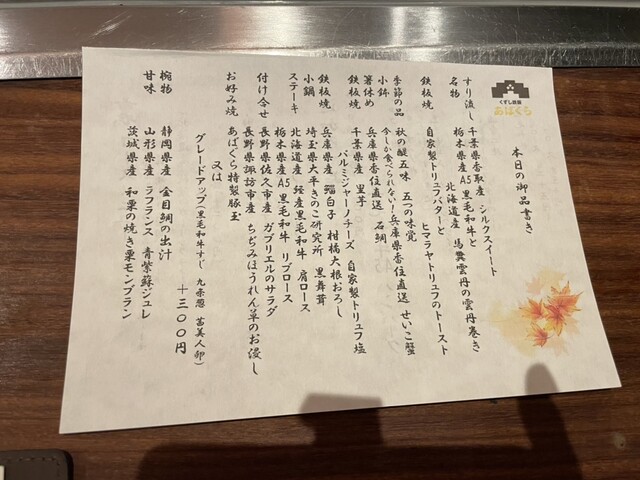 くずし鉄板
あばぐら
本日の御品書き
すり流し 千葉県香取産 シルクスイート
名物 栃木県産A5黒毛和牛と
北海道産 馬糞雲丹の雲丹巻き
鉄板焼 自家製トリュフバターと
ヒマラヤトリュフのトースト
季節の品 秋の醍五味 五つの味覚
小鉢 今しか食べられない！兵庫県香住直送 せいこ蟹
箸休め 兵庫県香住直送 石鯛
鉄板焼 千葉県産 里芋
パルミジャーノチーズ 自家製トリュフ塩
鉄板焼 兵庫県産 鱈白子 柑橘大根おろし
小鍋 埼玉県大平きのこ研究所 黒舞茸
ステーキ 北海道産 経産黒毛和牛 肩ロース
栃木県産A5黒毛和牛 リブロース
付け合せ 長野県佐久市産 ガブリエルのサラダ
長野県諏訪市産 ちぢみほうれん草のお浸し
お好み焼 あばぐら特製豚玉
又は
グレードアップ(黒毛和牛すじ 九条葱 茜美人卵)
＋300円
椀物 静岡県産 金目鯛の出汁
甘味 山形県産 ラフランス 青紫蘇ジュレ
茨城県産 和栗の焼き栗モンブラン